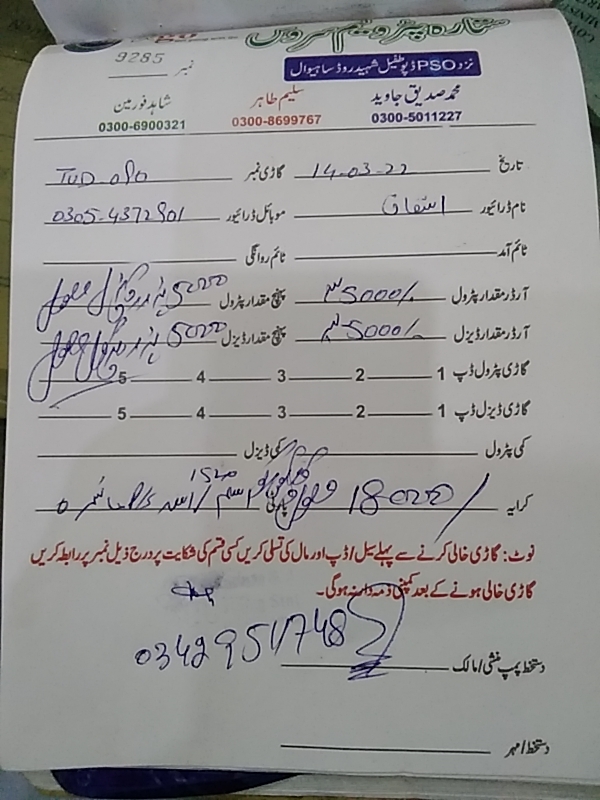 ستارہ پٹرولیم سروس
نمبر 9285
نزد PSO ڈپو طفیل شہید روڈ ساہیوال
محمد صدیق جاوید سلیم طاہر شاہد فورمین
0300-5011227 0300-8699767 0300-6900321
تاریخ 14-03-22 گاڑی نمبر TUD 090
نام ڈرائیور اشفاق موبائل ڈرائیور 0305-4372901
ٹائم آمد ٹائم روانگی
آرڈر مقدار پٹرول 5000/- پہنچ مقدار پٹرول 5000
آرڈر مقدار ڈیزل 5000/- پہنچ مقدار ڈیزل 5000
گاڑی پٹرول ڈپ 1 2 3 4 5
گاڑی ڈیزل ڈپ 1 2 3 4 5
کمی پٹرول کمی ڈیزل
کرایہ 18000/
نوٹ: گاڑی خالی کرنے سے پہلے سیل/ڈپ اور مال کی تسلی کریں کسی قسم کی شکایت پر درج ذیل نمبر پر رابطہ کریں
گاڑی خالی ہونے کے بعد کمپنی ذمہ دار نہ ہوگی۔
03429511748
دستخط پمپ منشی/مالک
دستخط/مہر